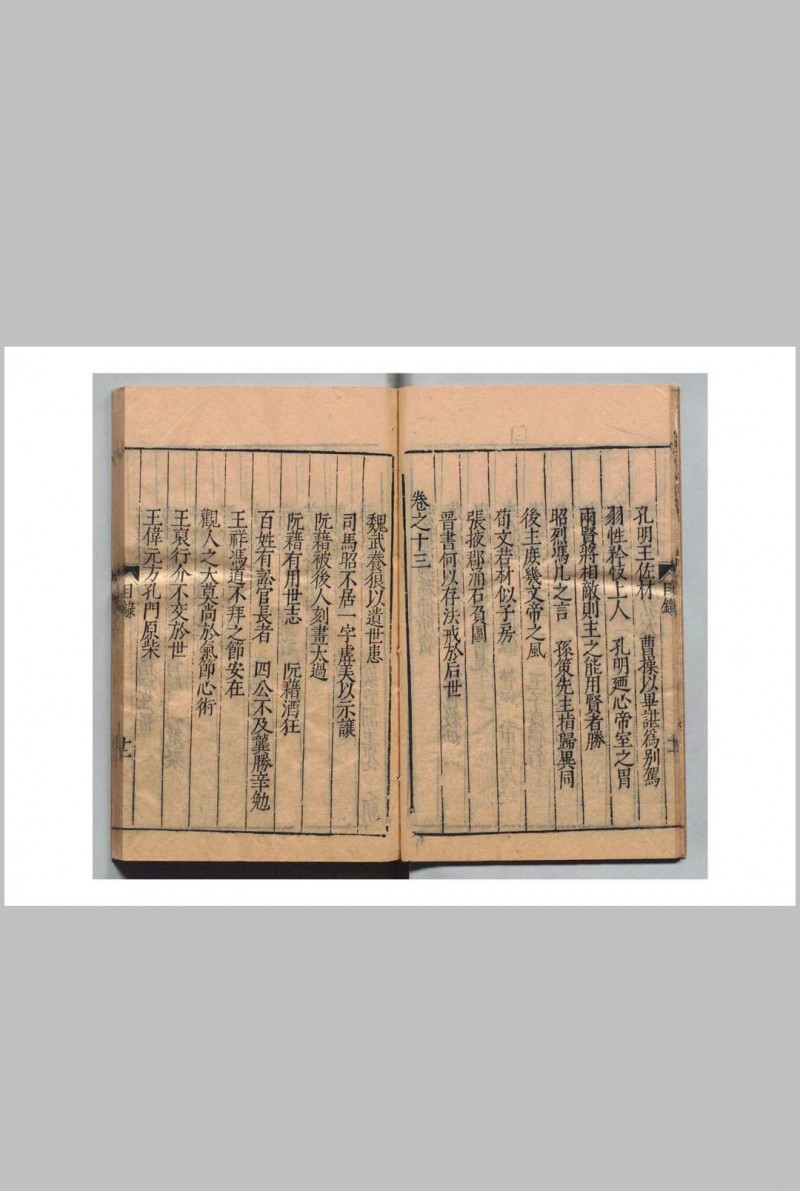 目錄
孔明王佐材　曹操以畢諶爲別駕
羽性矜伎上人　孔明廼心帝室之胃
兩賢將相敵則主之能用賢者勝
昭烈馮几之言　孫策先主指歸異同
後主庶幾文帝之風
荀文若材似子房
張掖郡涌石負圖
晉書何以存法戒於后世
卷之十三
魏武養狼以遺世患
司馬昭不居一字虛美以示讓
阮藉被後人刻畫太過
阮藉有用世志　阮藉酒狂
百姓有訟官長者　四公不及龔勝辛勉
王祥馮道不拜之節安在
觀人之大莫尚於氣節心術
王裒行介不交於世
王偉元方孔門原柴
目錄
廿二